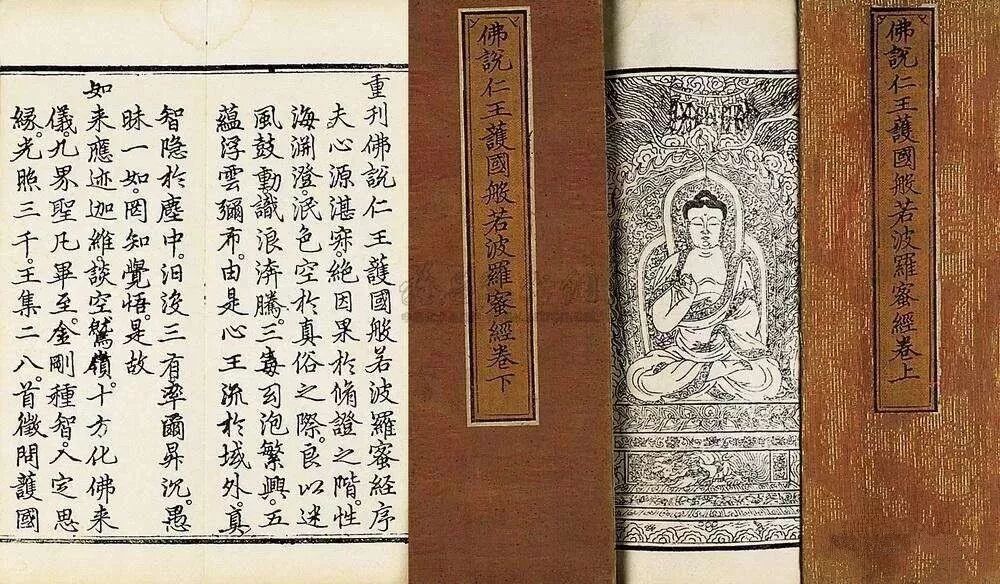 佛說仁王護國般若波羅蜜經卷上
佛說仁王護國般若波羅蜜經卷下
重刊佛說仁王護國般若波羅蜜經序
夫心源湛寂。絕因果於脩證之階。性
海淵澄。泯色空於真俗之際。良以迷
風鼓動。識浪奔騰。三毒幻泡繁興。五
蘊浮雲彌布。由是心王流於域外。真
智隐於塵中。汩沒三有。率爾昇沉。愚
昧一如。罔知覺悟。是故
如来應迹迦維。談空鷲嶺。十方化佛来
儀。九界聖凡畢至。金剛種智。入定思
緣。光照三千。王集二八。首徵問護國